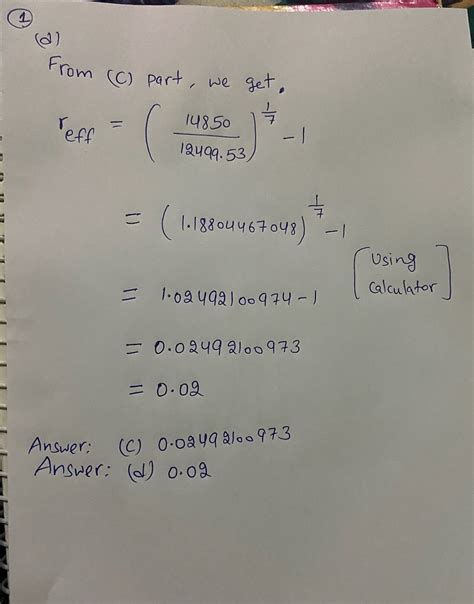 1
(d)
From (C) part, we get.
r_eff = (14850/12499.53)^(1/7) - 1
= (1.18804467048)^(1/7) - 1
[Using calculator]
= 1.02492100974 - 1
= 0.02492100973
= 0.02
Answer: (C) 0.02492100973
Answer: (d) 0.02